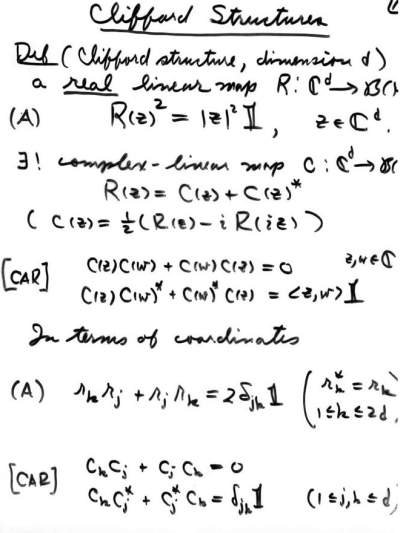 Clifford Structures
Def (Clifford structure, dimension d)
a real linear map R: ℂ^d → B(H
(A) R(z)^2 = |z|^2 𝟙, z ∈ ℂ^d.
∃! complex-linear map C: ℂ^d → B(
R(z) = C(z) + C(z)*
( C(z) = ½(R(z) - i R(iz) )
[CAR] C(z)C(w) + C(w)C(z) = 0 z,w ∈ ℂ
C(z)C(w)* + C(w)*C(z) = <z,w> 𝟙
In terms of coordinates
(A) r_k r_j + r_j r_k = 2δ_jk 𝟙 ( r_k* = r_k
1 ≤ k ≤ 2d
[CAR] C_k C_j + C_j C_k = 0
C_k C_j* + C_j* C_k = δ_jk 𝟙 (1 ≤ j,k ≤ d)